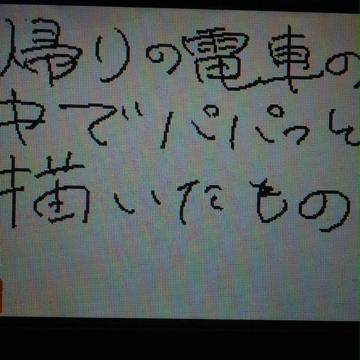 帰りの電車の
中でパパっと
描いたもの